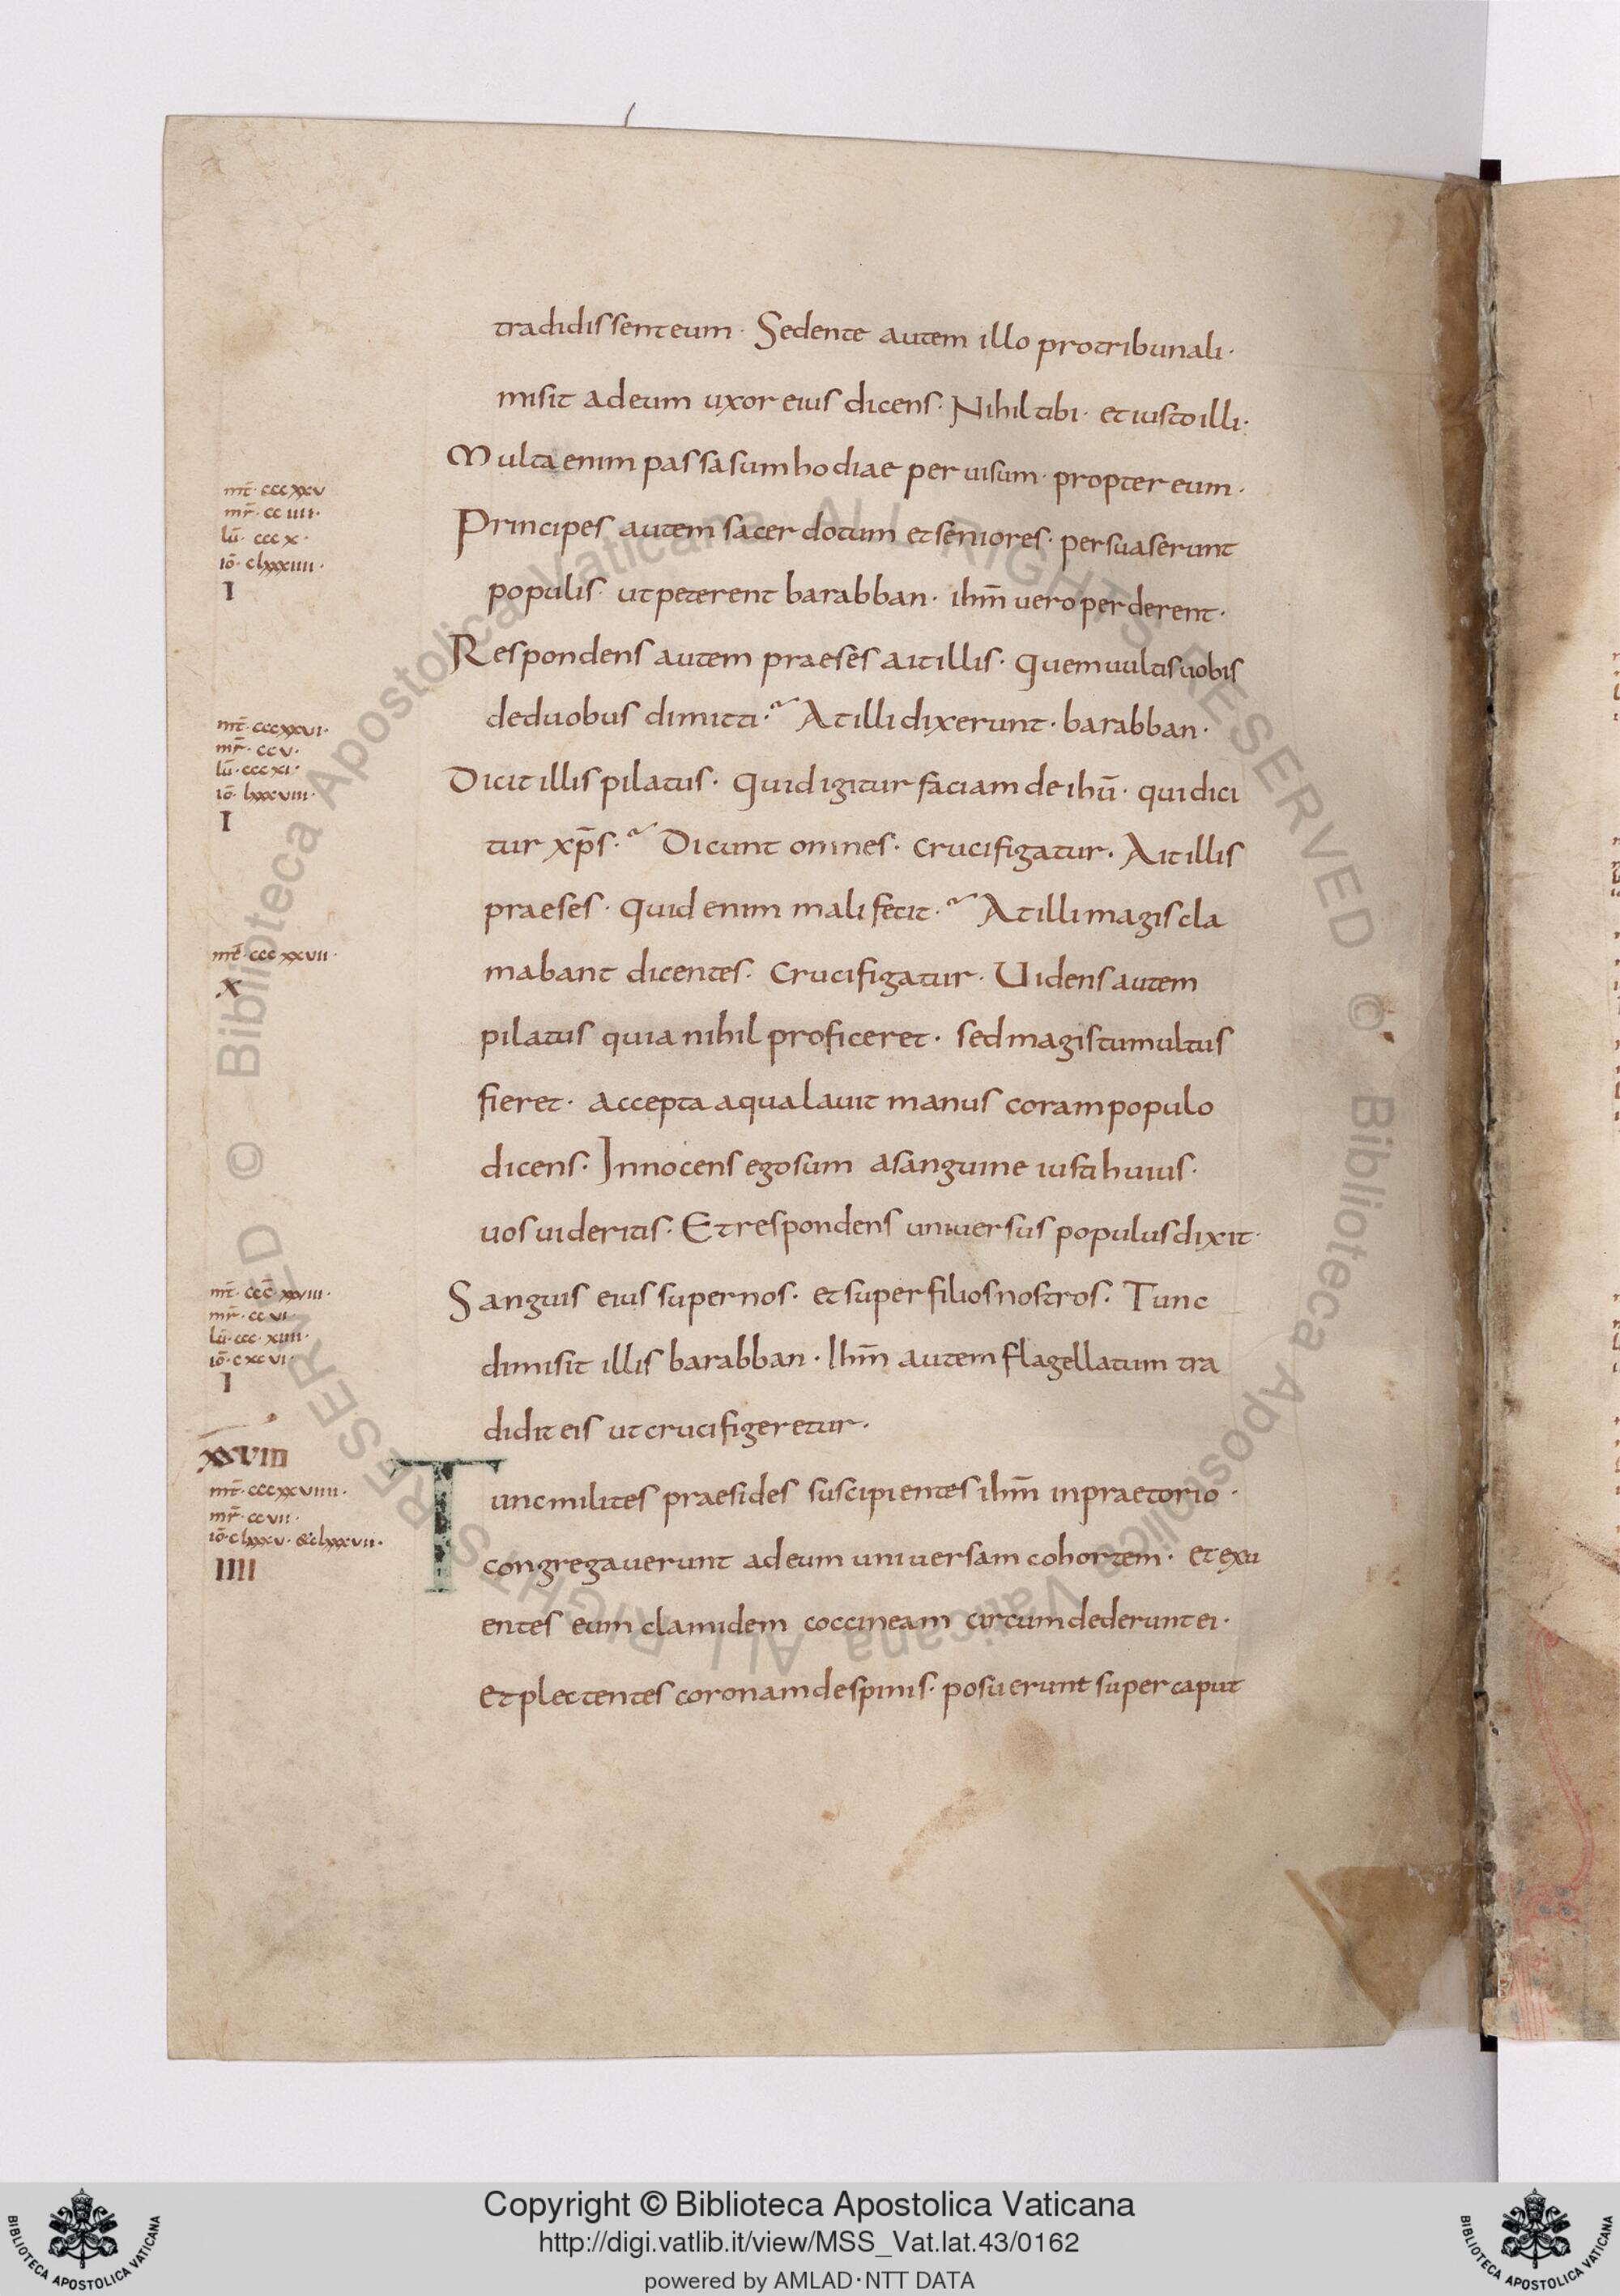 tradidissent eum · Sedente autem illo pro tribunali ·
misit ad eum uxor eius dicens · Nihil tibi · et iusto illi ·
Multa enim passa sum hodiae per uisum · propter eum ·
mt̄ · cccxxv
mr̄ · cciiii ·
lū · cccx ·
iō · clxxxiiii ·
I
Principes autem sacerdotum et seniores · persuaserunt
populis · ut peterent barabban · ihm̄ uero perderent ·
Respondens autem praeses ait illis · Quem uultis uobis
de duobus dimitti ·? At illi dixerunt · barabban ·
mt̄ · cccxxvi ·
mr̄ · ccv ·
lū · cccxi ·
iō · lxxxviii ·
I
Dicit illis pilatus · Quid igitur faciam de ihū · qui dici
tur xp̄s ·? Dicunt omnes · Crucifigatur · Ait illis
praeses · Quid enim mali fecit ·? At illi magis cla
mabant dicentes · Crucifigatur · Uidens autem
mt̄ · cccxxvii ·
X
pilatus quia nihil proficeret · sed magis tumultus
fieret · accepta aqua lauit manus coram populo
dicens · Innocens ego sum a sanguine iusti huius ·
uos uideritis · Et respondens uniuersus populus dixit ·
Sanguis eius super nos · et super filios nostros · Tunc
mt̄ · ccc̄ · xxviii ·
mr̄ · ccvi ·
lū · ccc · xiiii ·
iō · cxcvi ·
I
dimisit illis barabban · Ihm̄ autem flagellatum tra
didit eis ut crucifigeretur ·
XXVIII
mt̄ · cccxxviiii ·
mr̄ · ccvii ·
iō · clxxxv · & clxxxvii ·
IIII
Tunc milites praesides suscipientes ihm̄ in praetorio ·
congregauerunt ad eum uniuersam cohortem · et exu
entes eum clamidem coccineam circumdederunt ei ·
et plectentes coronam de spinis · posuerunt super caput
© Biblioteca Apostolica Vaticana ALL RIGHTS RESERVED © Biblioteca Apostolica Vaticana ALL RIGHTS RESERVED
Copyright © Biblioteca Apostolica Vaticana
http://digi.vatlib.it/view/MSS_Vat.lat.43/0162
powered by AMLAD·NTT DATA
BIBLIOTECA APOSTOLICA VATICANA
BIBLIOTECA APOSTOLICA VATICANA